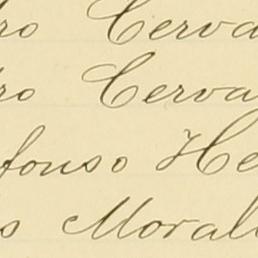 ro Cerva
ro Cerva
fonso He
s Moral